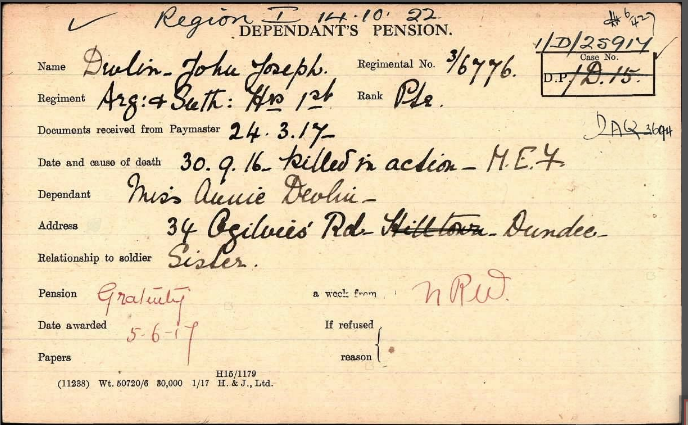 ✓ Region I 14.10.22
DEPENDANT'S PENSION.
1/D/25917 ✓
Name Devlin - John Joseph. Regimental No. 3/6776.
Case No.
D.P. 1/D.15.
Regiment Arg: & Suth: Hrs 1st Rank Pte.
Documents received from Paymaster 24.3.17-
Date and cause of death 30.9.16 - killed in action - M.E.F.
Dependant Miss Annie Devlin -
Address 34 Ogilvies' Rd - Hilltown - Dundee -
Relationship to soldier Sister.
Pension Gratuity a week from NRW.
Date awarded 5-6-17 If refused
Papers reason
H15/1179
(11238) Wt. 50720/6 30,000 1/17 H. & J., Ltd.